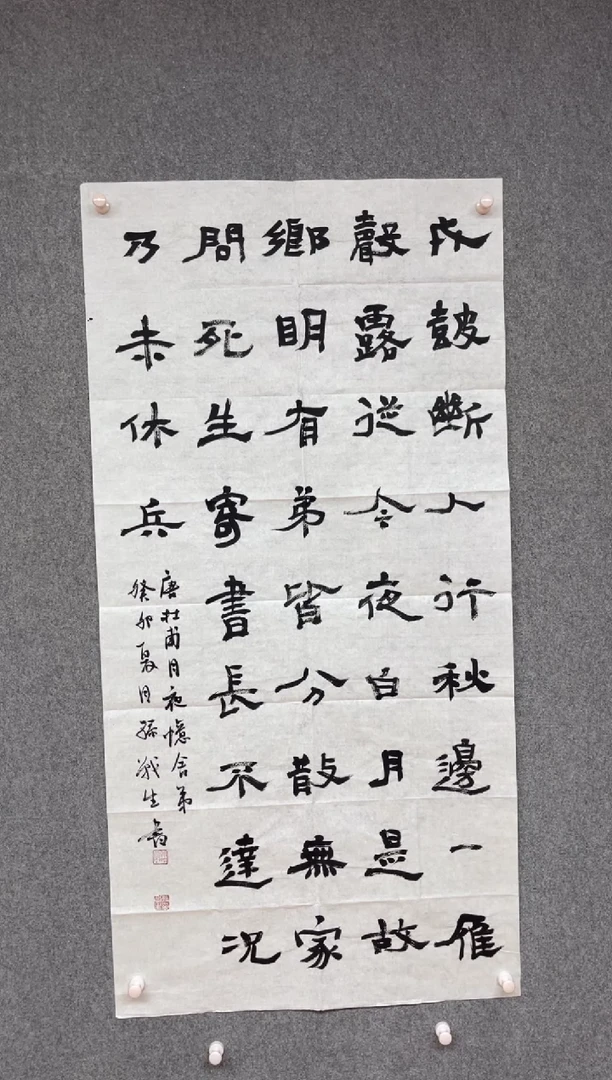 戍皷斷人行秋邊一雁
聲露從今夜白月是故
鄉明有弟皆分散無家
問死生寄書長不達況
乃未休兵
唐杜甫月夜憶舍弟
癸卯夏月孫生書